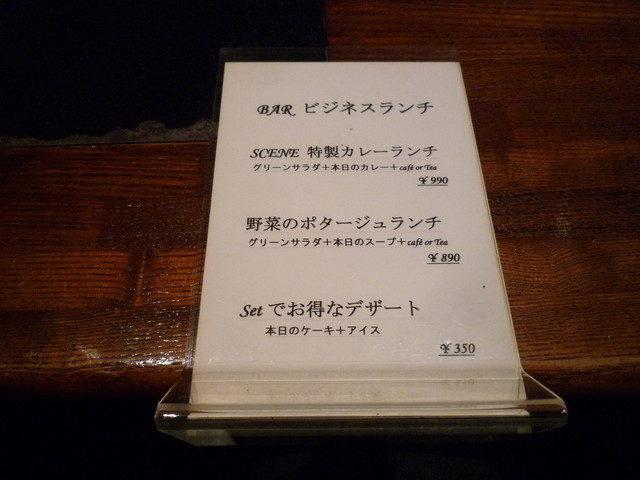 BAR ビジネスランチ
SCENE 特製カレーランチ
グリーンサラダ+本日のカレー+café or Tea
￥990
野菜のポタージュランチ
グリーンサラダ+本日のスープ+café or Tea
￥890
Set でお得なデザート
本日のケーキ+アイス
￥350